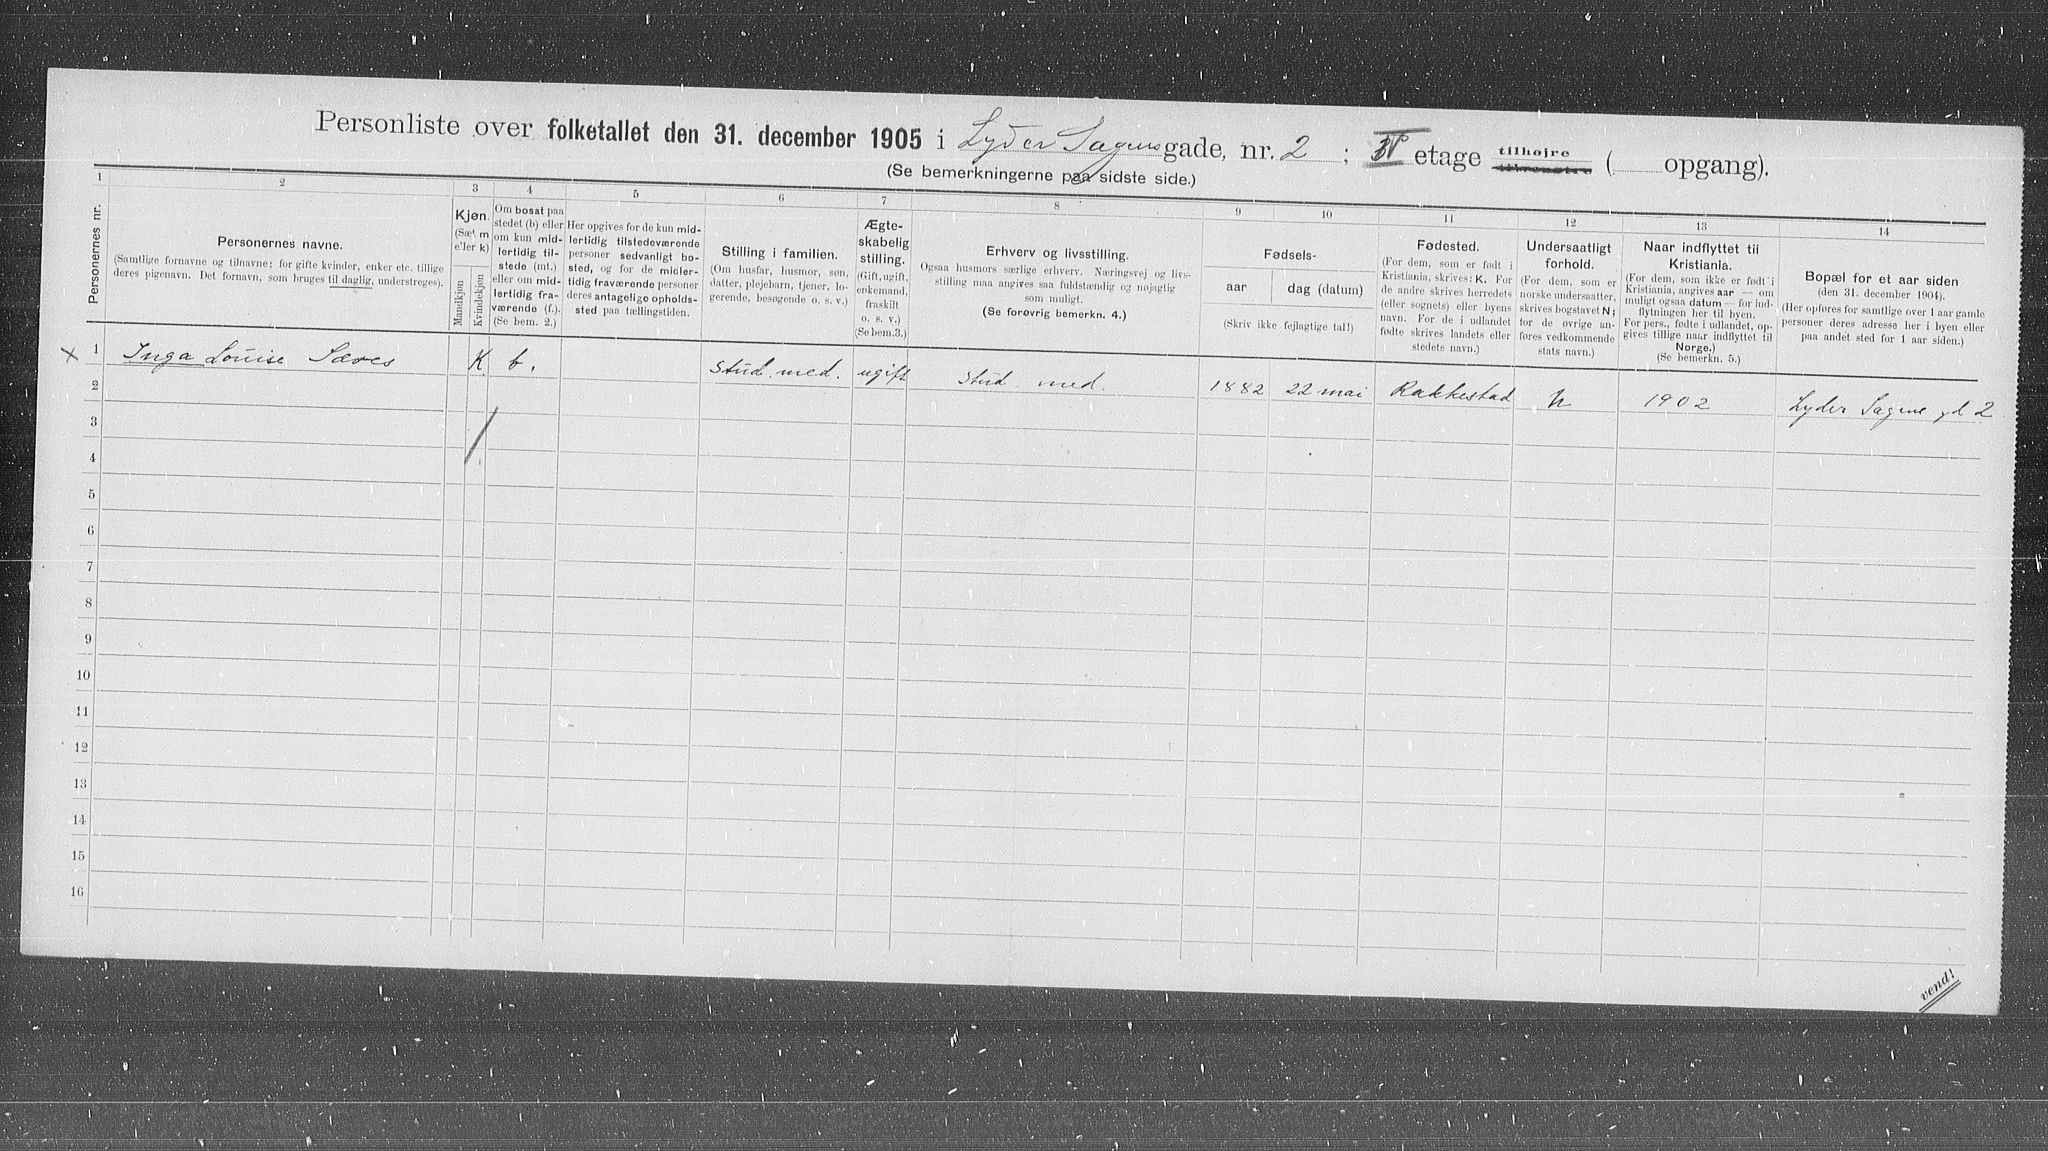 Personliste over folketallet den 31. december 1905 i Lyder Sagens gade, nr. 2 ; etage tilhøjre tilvenstre ( opgang).
(Se bemerkningerne paa sidste side.)
1 2 3 4 5 6 7 8 9 10 11 12 13 14
Personernes nr.
Personernes navne.
(Samtlige fornavne og tilnavne; for gifte kvinder, enker etc. tillige
deres pigenavn. Det fornavn, som bruges til daglig, understreges).
Kjøn.
(Sæt m
eller k)
Mandkjøn
Kvindekjøn
Om bosat paa
stedet (b) eller
om kun mid-
lertidig til-
stede (mt.)
eller om mid-
lertidig fra-
værende (f.).
(Se bem. 2.)
Her opgives for de kun mid-
lertidig tilstedeværende
personer sedvanlig bo-
sted, og for de midler-
tidig fraværende personer
deres antagelige opholds-
sted paa tællingstiden.
Stilling i familien.
(Om husfar, husmor, søn,
datter, plejebarn, tjener, lo-
gerende, besøgende o. s. v.)
Ægte-
skabelig
stilling.
(Gift, ugift,
enkemand,
fraskilt
o. s. v.)
(Se bem.3.)
Erhverv og livsstilling.
Ogsaa husmors særlige erhverv. Næringsvej og livs-
stilling maa angives saa fuldstændig og nøjagtig
som muligt.
(Se forøvrig bemerkn. 4.)
Fødsels-
aar
dag (datum)
(Skriv ikke fejlagtige tal!)
Fødested.
(For dem, som er født i
Kristiania, skrives: K. For
de andre skrives herredets
(eller sognets) eller byens
navn. For de i udlandet
fødte skrives landets eller
stedets navn.)
Undersaatligt
forhold.
(For dem, som er
norske undersaatter,
skrives bogstavet N;
for de øvrige an-
føres vedkommende
stats navn.)
Naar indflyttet til
Kristiania.
(For dem, som ikke er født i
Kristiania, angives aar — om
muligt ogsaa datum — for ind-
flytningen her til byen.
For pers., fødte i udlandet, op-
gives tillige naar indflyttet til
Norge.)
(Se bemerkn. 5.)
Bopæl for et aar siden
(den 31. december 1904).
(Her opføres for samtlige over 1 aar gamle
personer deres adresse her i byen eller
paa andet sted for 1 aar siden.)
x 1 Inga Louise K b. stud. med. ugift stud. med. 1882 22 mai Rakkestad N 1902 Lyder Sagens gd 2
2
3
4
5
6
7
8
9
10
11
12
13
14
15
16
vend!